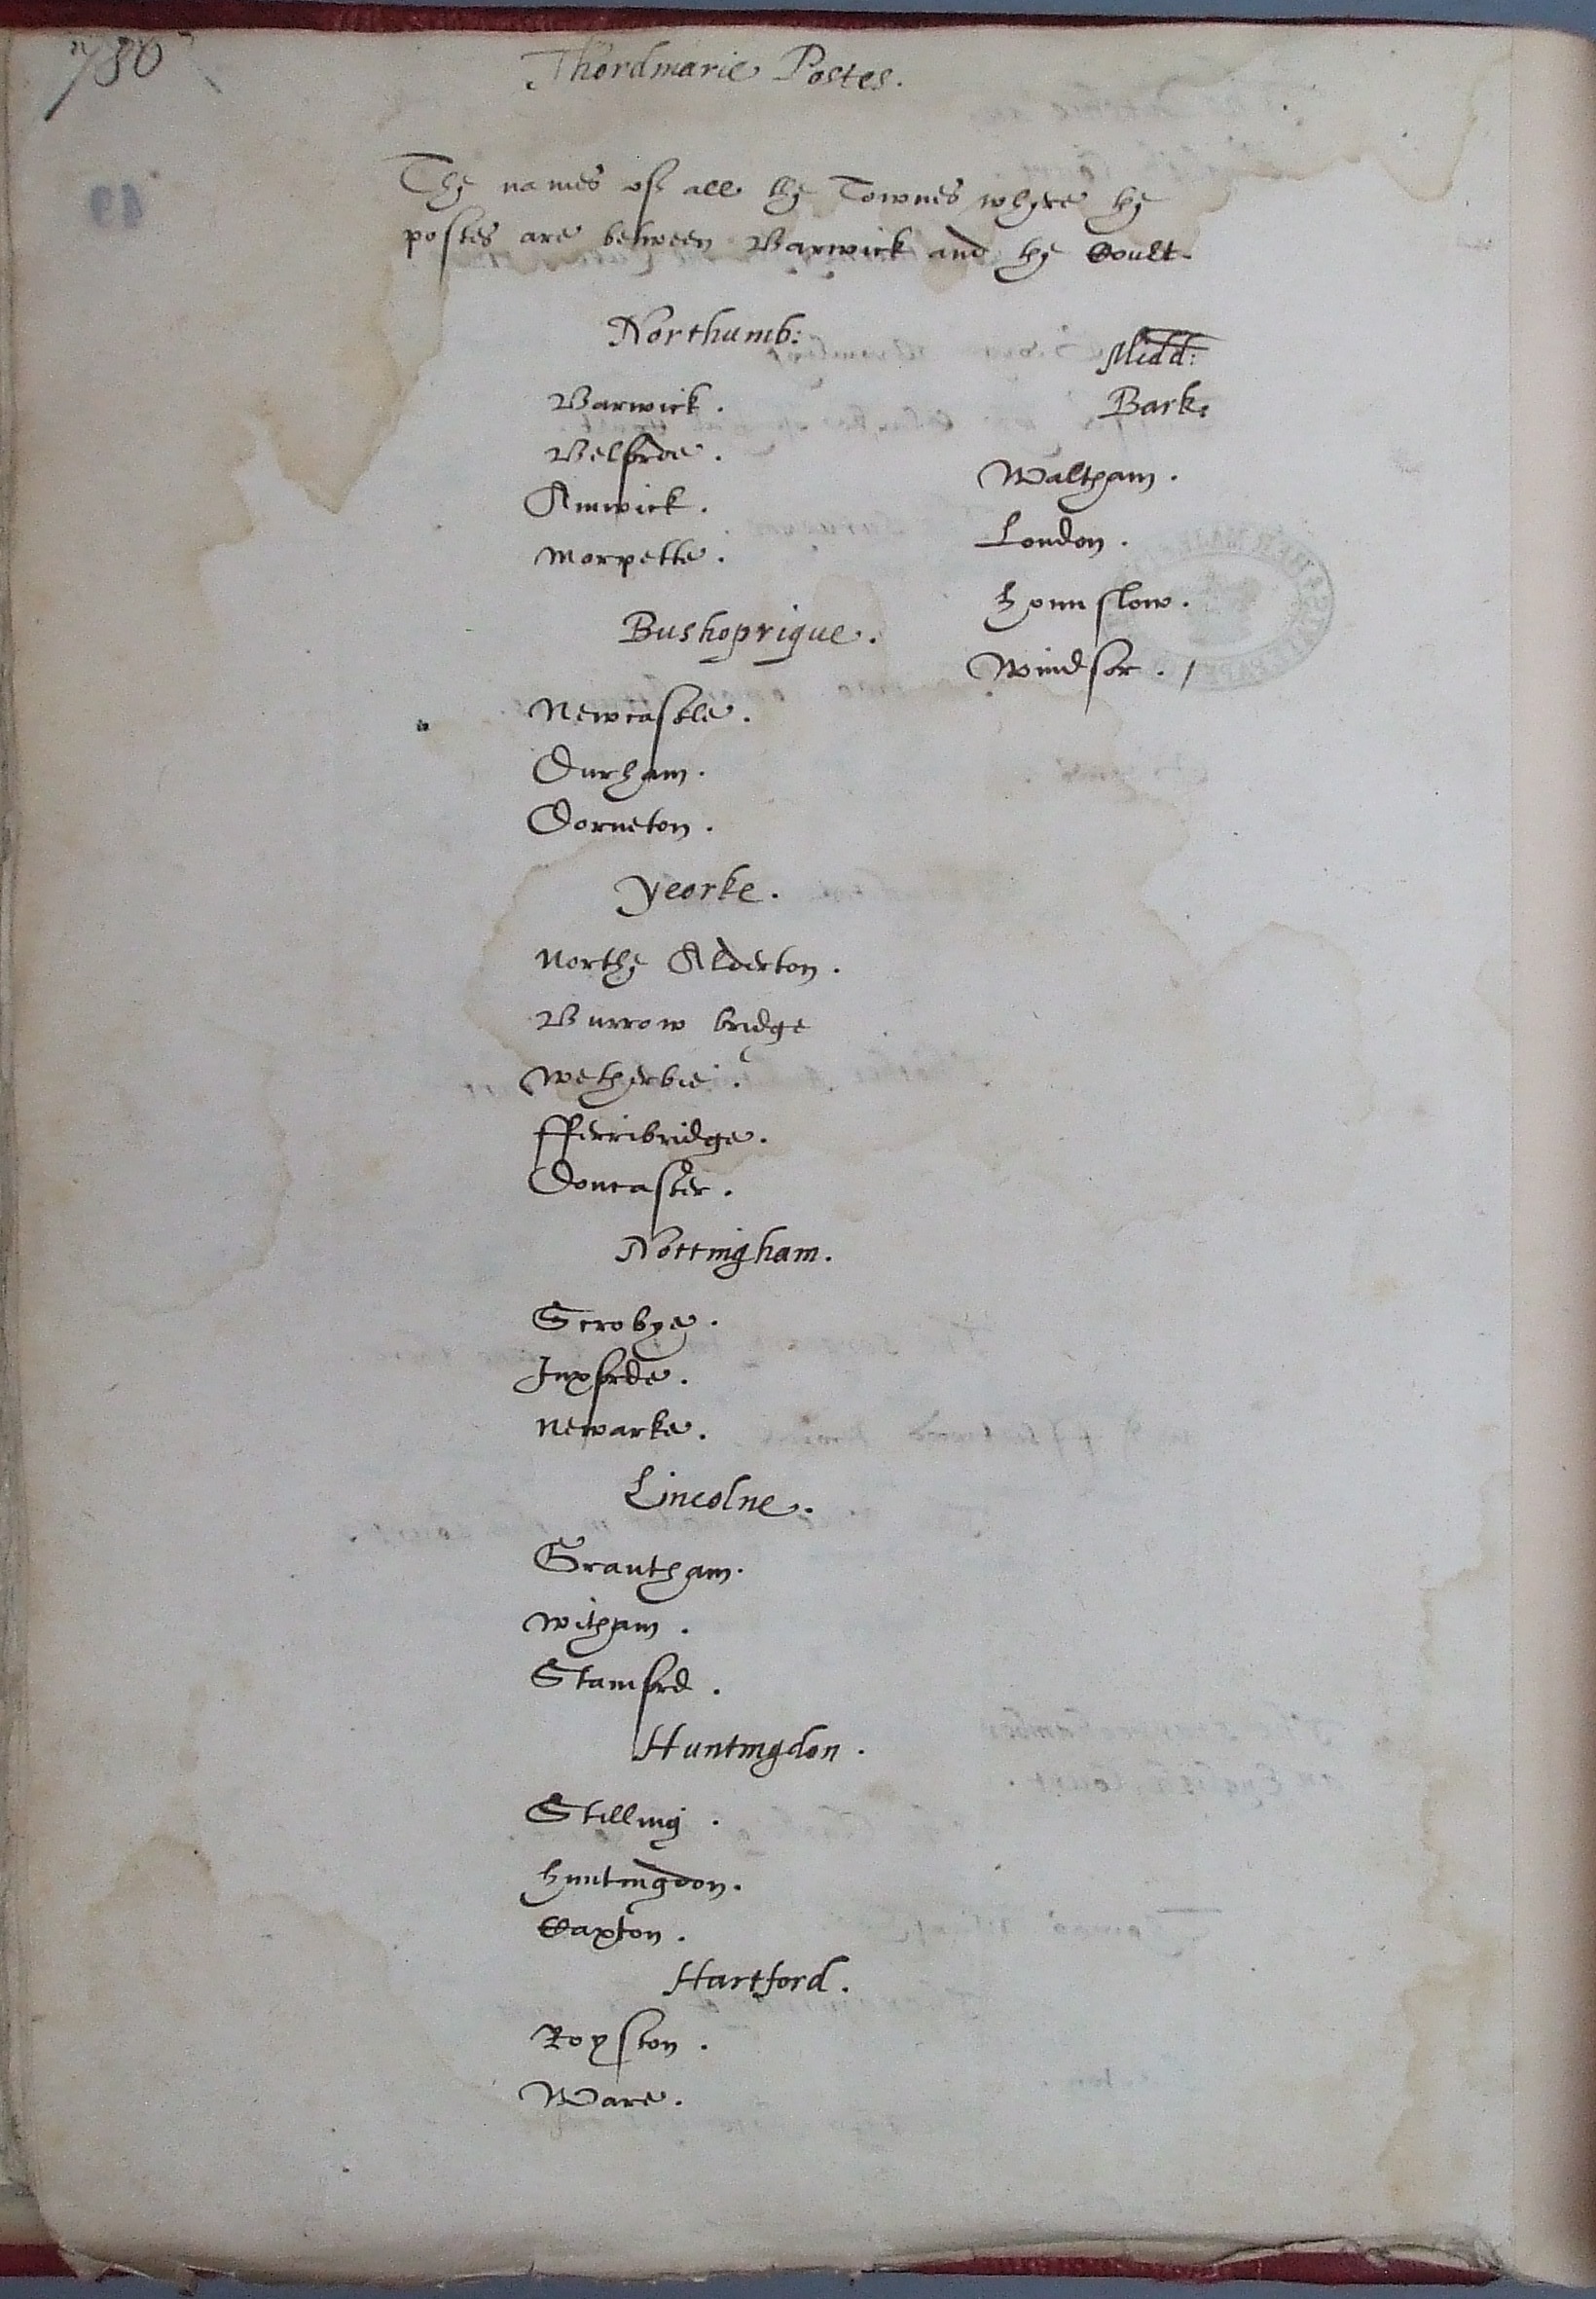 786
Thordmarie Postes.
The names of all the Townes where the
postes are between Barwick and the Coult.
Northumb:
Barwick.
Belforde.
Anwick.
Morpette.
Bushoprique.
Newcastle.
Durham.
Dorneton.
Yeorke.
Northe Alderton.
Burrow bridge
Wetherbie.
fferribridge.
Doncaster.
Nottingham.
Scrobye.
Tuxforde.
Newarke.
Lincolne.
Grantham.
Witham.
Stamford.
Huntingdon.
Stilling.
Huntingdon.
Caxton.
Hartford.
Royston.
Ware.
Midd:
Bark:
Waltham.
London.
Hounslow.
Windsor.